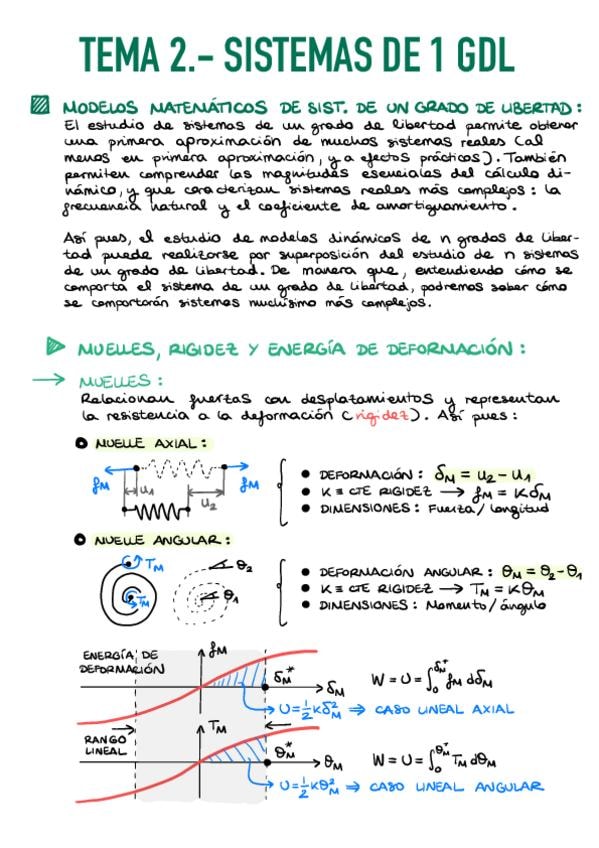 TEMA 2.- SISTEMAS DE 1 GDL
MODELOS MATEMÁTICOS DE SIST. DE UN GRADO DE LIBERTAD:
El estudio de sistemas de un grado de libertad permite obtener
una primera aproximación de muchos sistemas reales (al
menos en primera aproximación, y a efectos prácticos). También
permiten comprender las magnitudes esenciales del cálculo di-
námico, y que caracterizan sistemas reales más complejos: la
frecuencia natural y el coeficiente de amortiguamiento.
Así pues, el estudio de modelos dinámicos de n grados de liber-
tad puede realizarse por superposición del estudio de n sistemas
de un grado de libertad. De manera que, entendiendo cómo se
comporta el sistema de un grado de libertad, podremos saber cómo
se comportarán sistemas muchísimo más complejos.
MUELLES, RIGIDEZ Y ENERGÍA DE DEFORMACIÓN:
→ MUELLES:
Relacionan fuerzas con desplazamientos y representan
la resistencia a la deformación (rigidez). Así pues:
MUELLE AXIAL:
f_M u_1 u_2 f_M
• DEFORMACIÓN: δ_M = u_2 - u_1
• K ≡ CTE RIGIDEZ → f_M = Kδ_M
• DIMENSIONES: Fuerza/Longitud
MUELLE ANGULAR:
T_M T_M θ_2 θ_1
• DEFORMACIÓN ANGULAR: θ_M = θ_2 - θ_1
• K ≡ CTE RIGIDEZ → T_M = Kθ_M
• DIMENSIONES: Momento/ángulo
ENERGÍA DE
DEFORMACIÓN
f_M δ_M* δ_M
W = U = ∫_0^{δ_M*} f_M dδ_M
U = 1/2 Kδ_M^2 ⇒ CASO LINEAL AXIAL
RANGO
LINEAL
T_M θ_M* θ_M
W = U = ∫_0^{θ_M*} T_M dθ_M
U = 1/2 Kθ_M^2 ⇒ CASO LINEAL ANGULAR